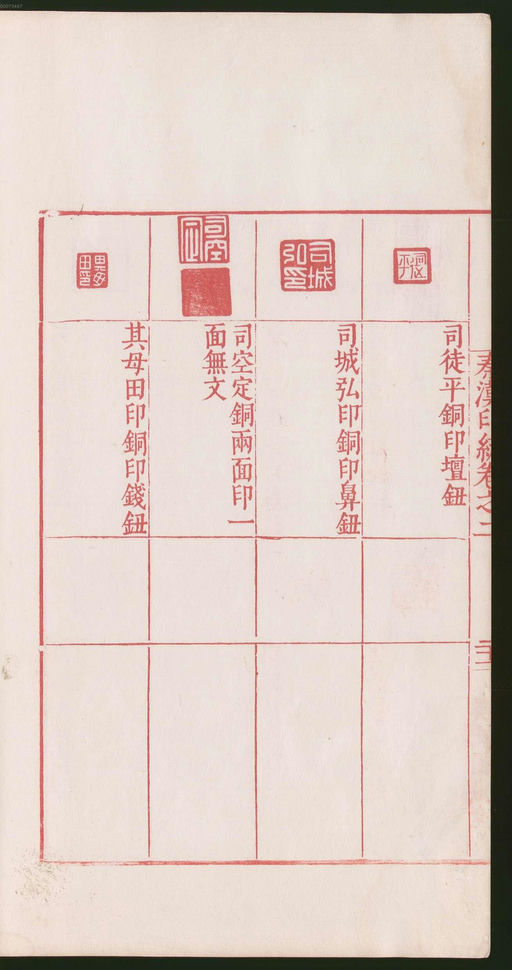 秦漢印統卷之二
司徒平銅印壇鈕
司城弘印
司城弘印銅印鼻鈕
司空定
司空定銅兩面印一
面無文
其母田印銅印錢鈕